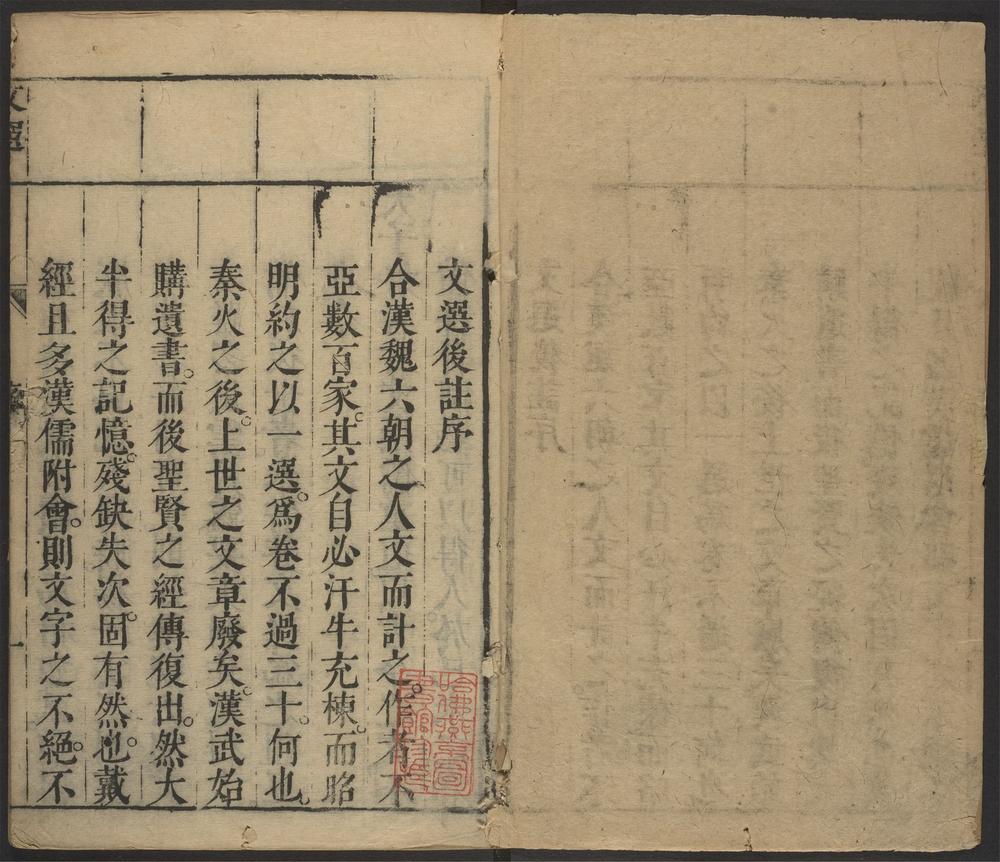 文選後註序
合漢魏六朝之人文而計之。作者不
亞數百家。其文自必汗牛充棟。而昭
明約之以一選。爲卷不過三十。何也。
秦火之後。上世之文章廢矣。漢武始
購遺書。而後聖賢之經傳復出。然大
半得之記憶。殘缺失次。固有然也。戴
經且多漢儒附會。則文字之不絕。不
文選
序
一
哈佛燕京圖
書館